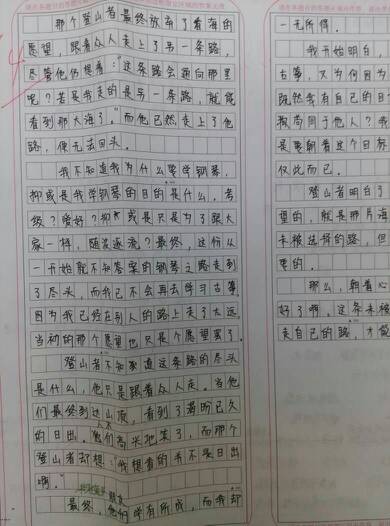 那个登山者最终放弃了看海的
愿望，跟着众人走上了另一条路，
尽管他仍想着："这条路会通向哪里
呢？若是我走的是另一条路，就能
看到那大海了。"而他已然走上了他
路，便无法回头。
我不知道我为什么要学钢琴，
抑或是我学钢琴的目的是什么，考
级？爱好？抑或是只是为了跟大
家一样，随波逐流？最终，这份从
一开始就不知答案的钢琴之路走到
了尽头，而我已不会再去学习古筝，
因为我已经在别人的路上走了太远。
当初的那个愿望也只是个愿望罢了。
登山者不知道这条路的尽头
是什么，他只是跟着众人走。当他
们最终到达山顶，看到了期盼已久
的日出，他们高兴地笑了，而那个
登山者却想："我想看的并不是日出
啊。"
最终，他们学有所成，而我却
一无所得。
我开始明白，
古筝，又为何因
既然我有自己的目
标，为
是要朝着这个目标
仅此而已。
登山者明白了
望的，就是那片海
未被选择的路，但
要的。
那么，朝着心
好了啊。这条未被
走自己的路，才能